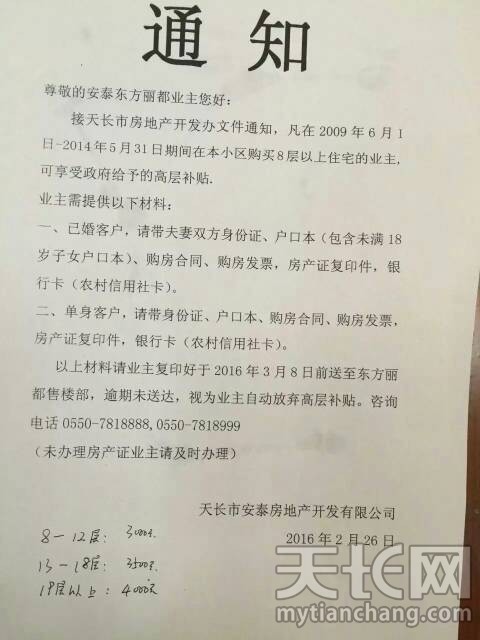 通知
尊敬的安泰东方丽都业主您好:
接天长市房地产开发办文件通知，凡在 2009 年 6 月 1
日-2014 年 5 月 31 日期间在本小区购买 8 层以上住宅的业主,
可享受政府给予的高层补贴.
业主需提供以下材料:
一、已婚客户，请带夫妻双方身份证、户口本（包含未满 18
岁子女户口本）、购房合同、购房发票，房产证复印件，银
行卡（农村信用社卡）。
二、单身客户，请带身份证、户口本、购房合同、购房发票，
房产证复印件，银行卡（农村信用社卡）。
以上材料请业主复印好于 2016 年 3 月 8 日前送至东方丽
都售楼部，逾期未送达，视为业主自动放弃高层补贴。咨询
电话 0550-7818888,0550-7818999
（未办理房产证业主请及时办理）
天长市安泰房地产开发有限公司
2016 年 2 月 26 日
8-12层: 3000元
13-18层: 3500元
19层以上: 4000元
天长网
mytianchang.com